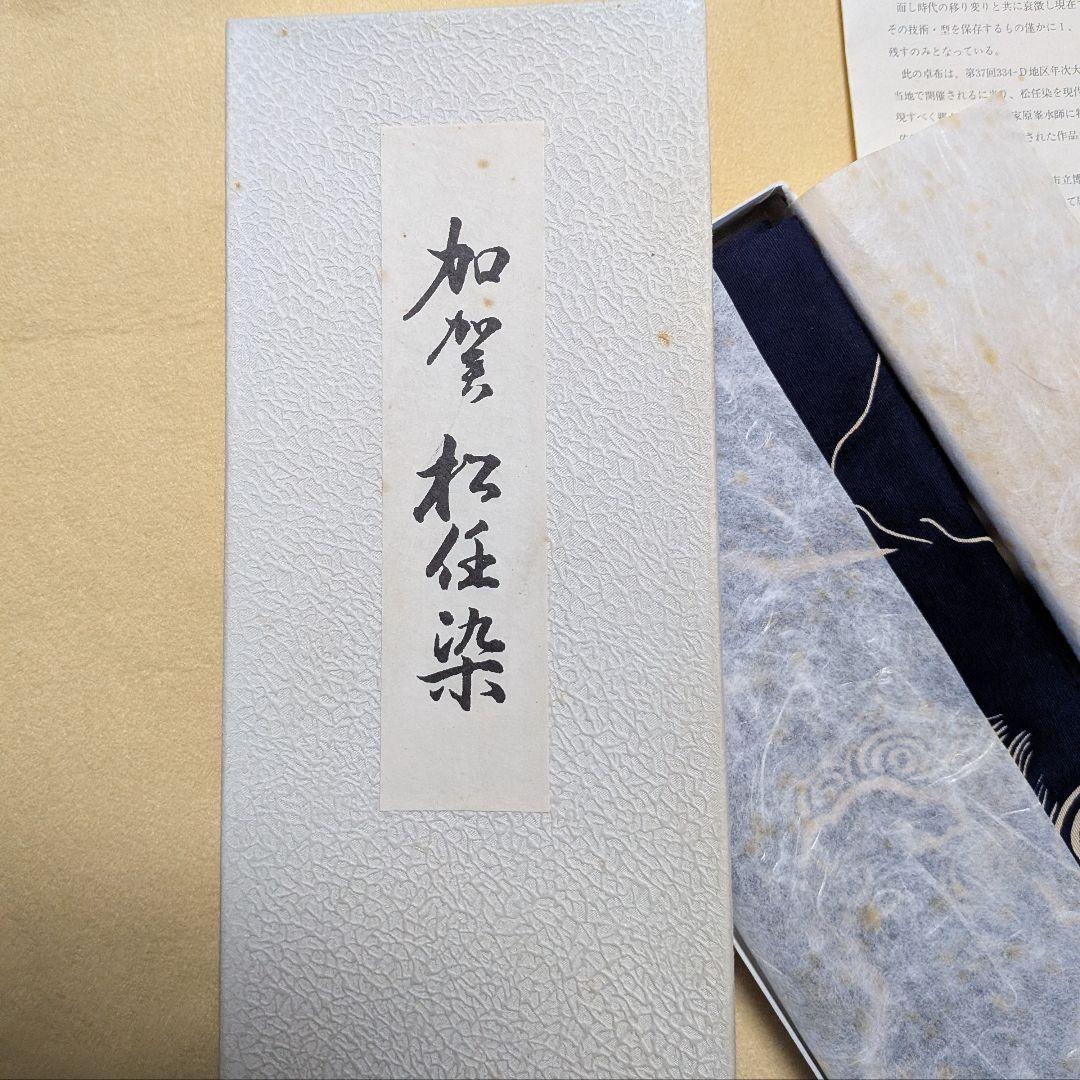 加賀 松任染
而し時代の移り変りと共に衰微し現在
その技術・型を保存するもの僅かに1、
残すのみとなっている。
此の卓布は、第37回334-D地区年次大
当地で開催されるに当り、松任染を現代
現すべく
家原峯水師に
された作品
市立博